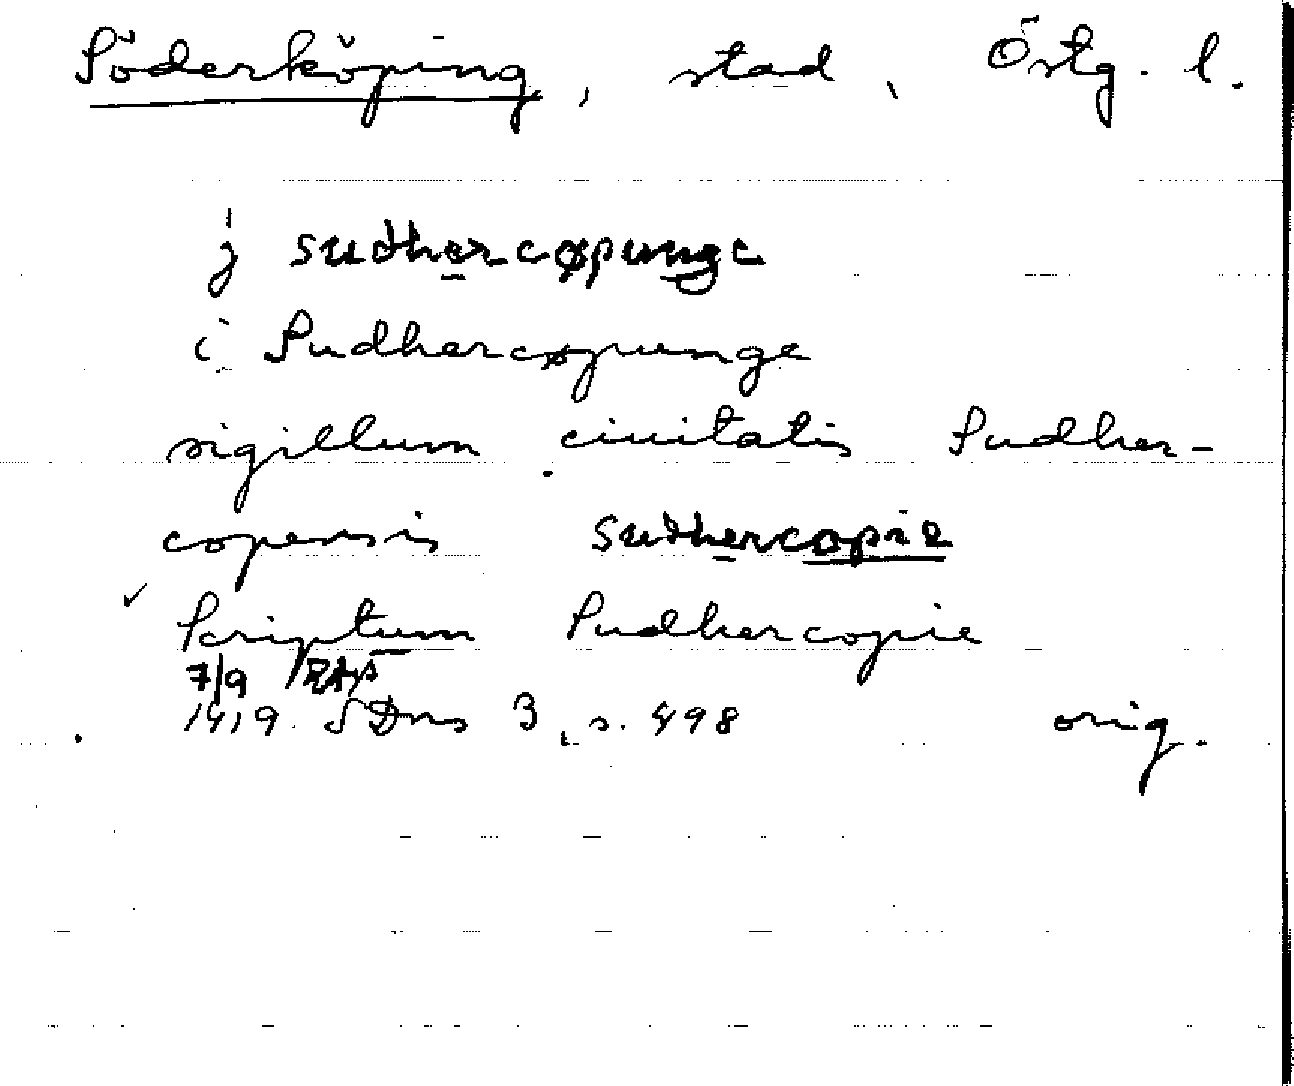 Söderköping, stad, Östg. l.
j sudhercøpunge
i Sudhercøpunge
sigillum ciuitatis Sudher-
copensis sudhercopie
Scriptum Sudhercopie
7/9 RAp
1419 SDns 3, s. 498 orig.